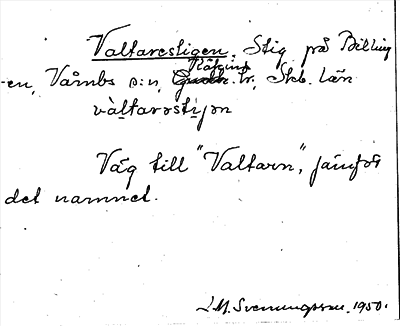 Valtarestigen. Stig på Billing
-en, Varnbs s:n, Kåkinds tr, Skb. län
valtarəstiȷən
Väg till "Valtarn", jämför
det namnet.
L.M. Svenungsson. 1950.